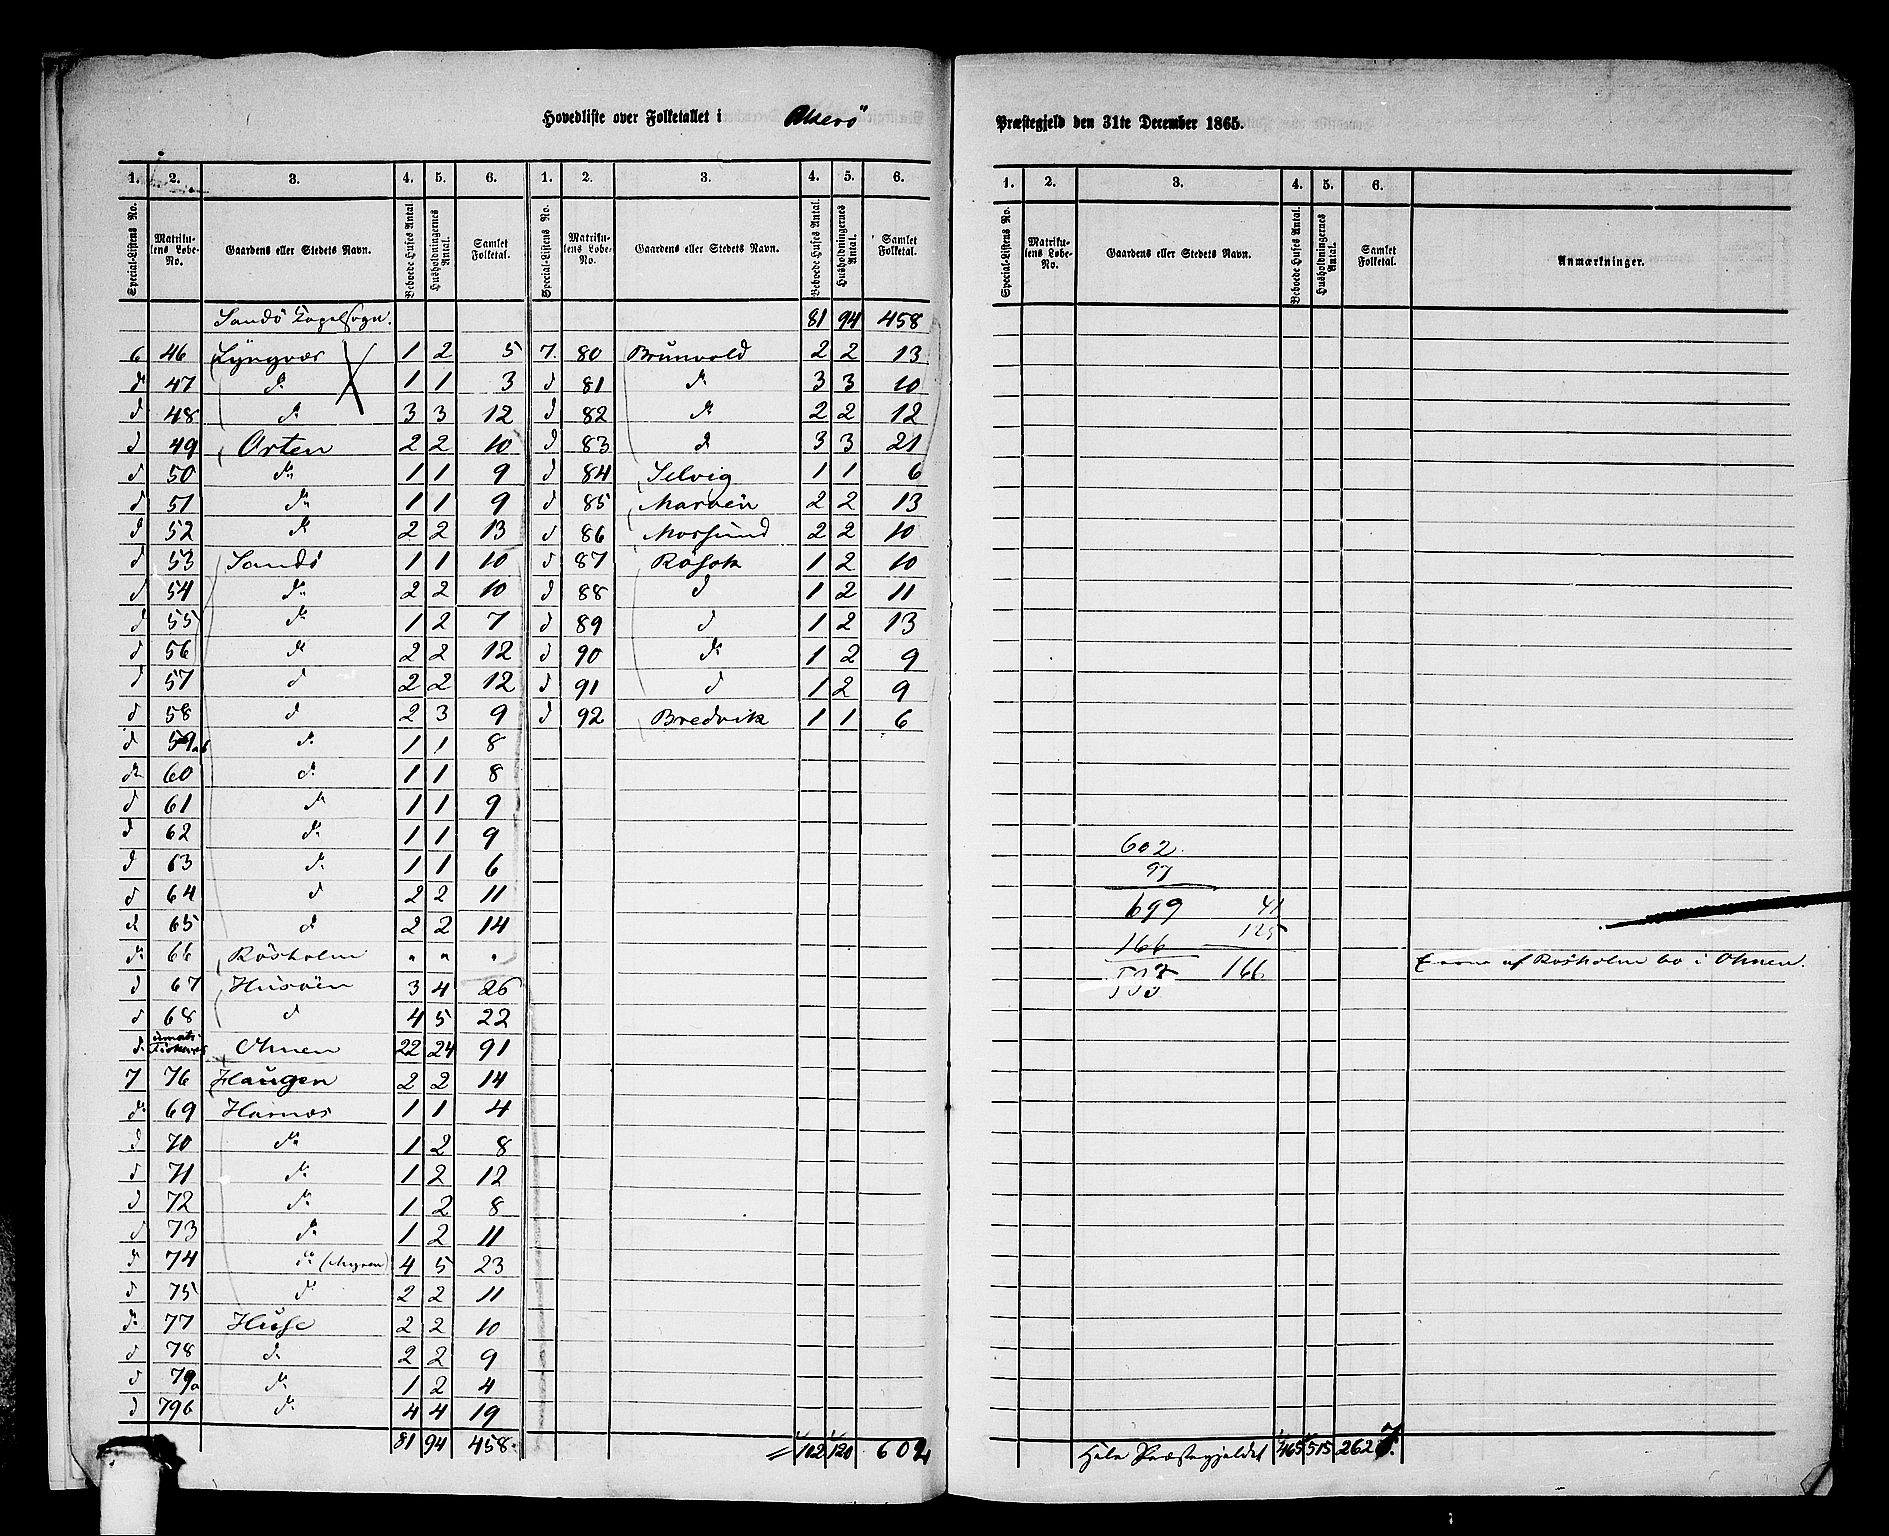 Hovedliste over Folketallet i Akerö Præstegjeld den 31te December 1865.
1. 2. 3. 4. 5. 6. 1. 2. 3. 4. 5. 6.
Special-Listens No. Matrikulens Løbe-No. Gaardens eller Stedets Navn. Beboede Huses Antal. Husholdningernes Antal. Samlet Folketal. Special-Listens No. Matrikulens Løbe-No. Gaardens eller Stedets Navn. Beboede Huses Antal. Husholdningernes Antal. Samlet Folketal.
Sandö Capelsogn. 81 94 458
6 46 Lyngvær 1 2 5 7. 80 Brunvold 2 2 13
do 47 do 1 1 3 d 81 do 3 3 10
d 48 do 3 3 12 d 82 do 2 2 12
d 49 Orten 2 2 10 d 83 d 3 3 21
d 50 do 1 1 9 d 84 Selvig 1 1 6
d 51 do 1 1 9 d 85 Marøen 2 2 13
d 52 do 2 2 13 d 86 Morsund 2 2 10
d 53 Sandö 1 1 10 d 87 Rösok 1 2 10
d 54 do 2 2 10 d 88 d 1 2 11
d 55 do 1 2 7 d 89 d 1 2 13
d 56 do 2 2 12 d 90 do 1 2 9
d 57 d 2 2 12 d 91 d 1 2 9
d 58 d 2 3 9 d 92 Bredvik 1 1 6
d 59ab do 1 1 8
do 60 do 1 1 8
d 61 do 1 1 9
d 62 do 1 1 9
d 63 do 1 1 6
d 64 d 2 2 11
d 65 d 2 2 14
do 66 Rösholm " " "
d 67 Husöen 3 4 26
d 68 d 4 5 22
do Ohnen 22 24 91
7 76 Haugen 2 2 14
do 69 Harnæs 1 1 4
d 70 do 1 2 8
d 71 do 1 2 12
d 72 do 1 2 8
d 73 do 1 2 11
do 74 do (Myren) 4 5 23
d 75 do 2 2 11
do 77 Huse 2 2 10
d 78 do 2 2 9
d 79a do 1 2 4
d 79b do 4 4 19
81 94 458. 102 120 602
1. 2. 3. 4. 5. 6.
Special-Listens No. Matrikulens Løbe-No. Gaardens eller Stedets Navn. Beboede Huses Antal. Husholdningernes Antal. Samlet Folketal. Anmærkninger.
602.
97
699 41
166 125
533 166
533
af Rösholm bo i Ohnen.
Hele Præstegjeldet 465 515 2627.